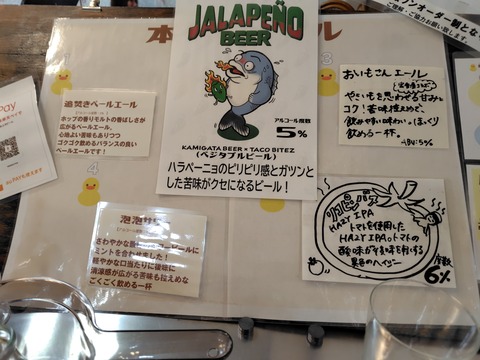 ンオーダー制とな
ご理解・ご協力お願い致します
本
ル
JALAPEÑO
BEER
アルコール度数
5%
KAMIGATA BEER × TACO BITEZ
(ベジタブルビール)
ハラペーニョのピリピリ感とガツンと
した苦味がクセになるビール!
1
追焚きペールエール
ホップの香りモルトの香ばしさが
広がるペールエール。
心地よい苦味もありつつ
ゴクゴク飲めるバランスの良い
ペールエールです!
3
おいもさんエール
やさいもを思わせる甘みと
コク!苦味控えめで、
飲みやすい味わい。ほっくり
飲める一杯。
4
泡泡サワー
さわやかな
ミントを合わせました!
軽やかな口当たりに後味に
清涼感が広がる苦味も控えめ
ごくごく飲める一杯
HAZY IPA
トマトを使用した
HAZY IPA。トマトの
酸味が
異色のヘイジー
度数
6%
Pay